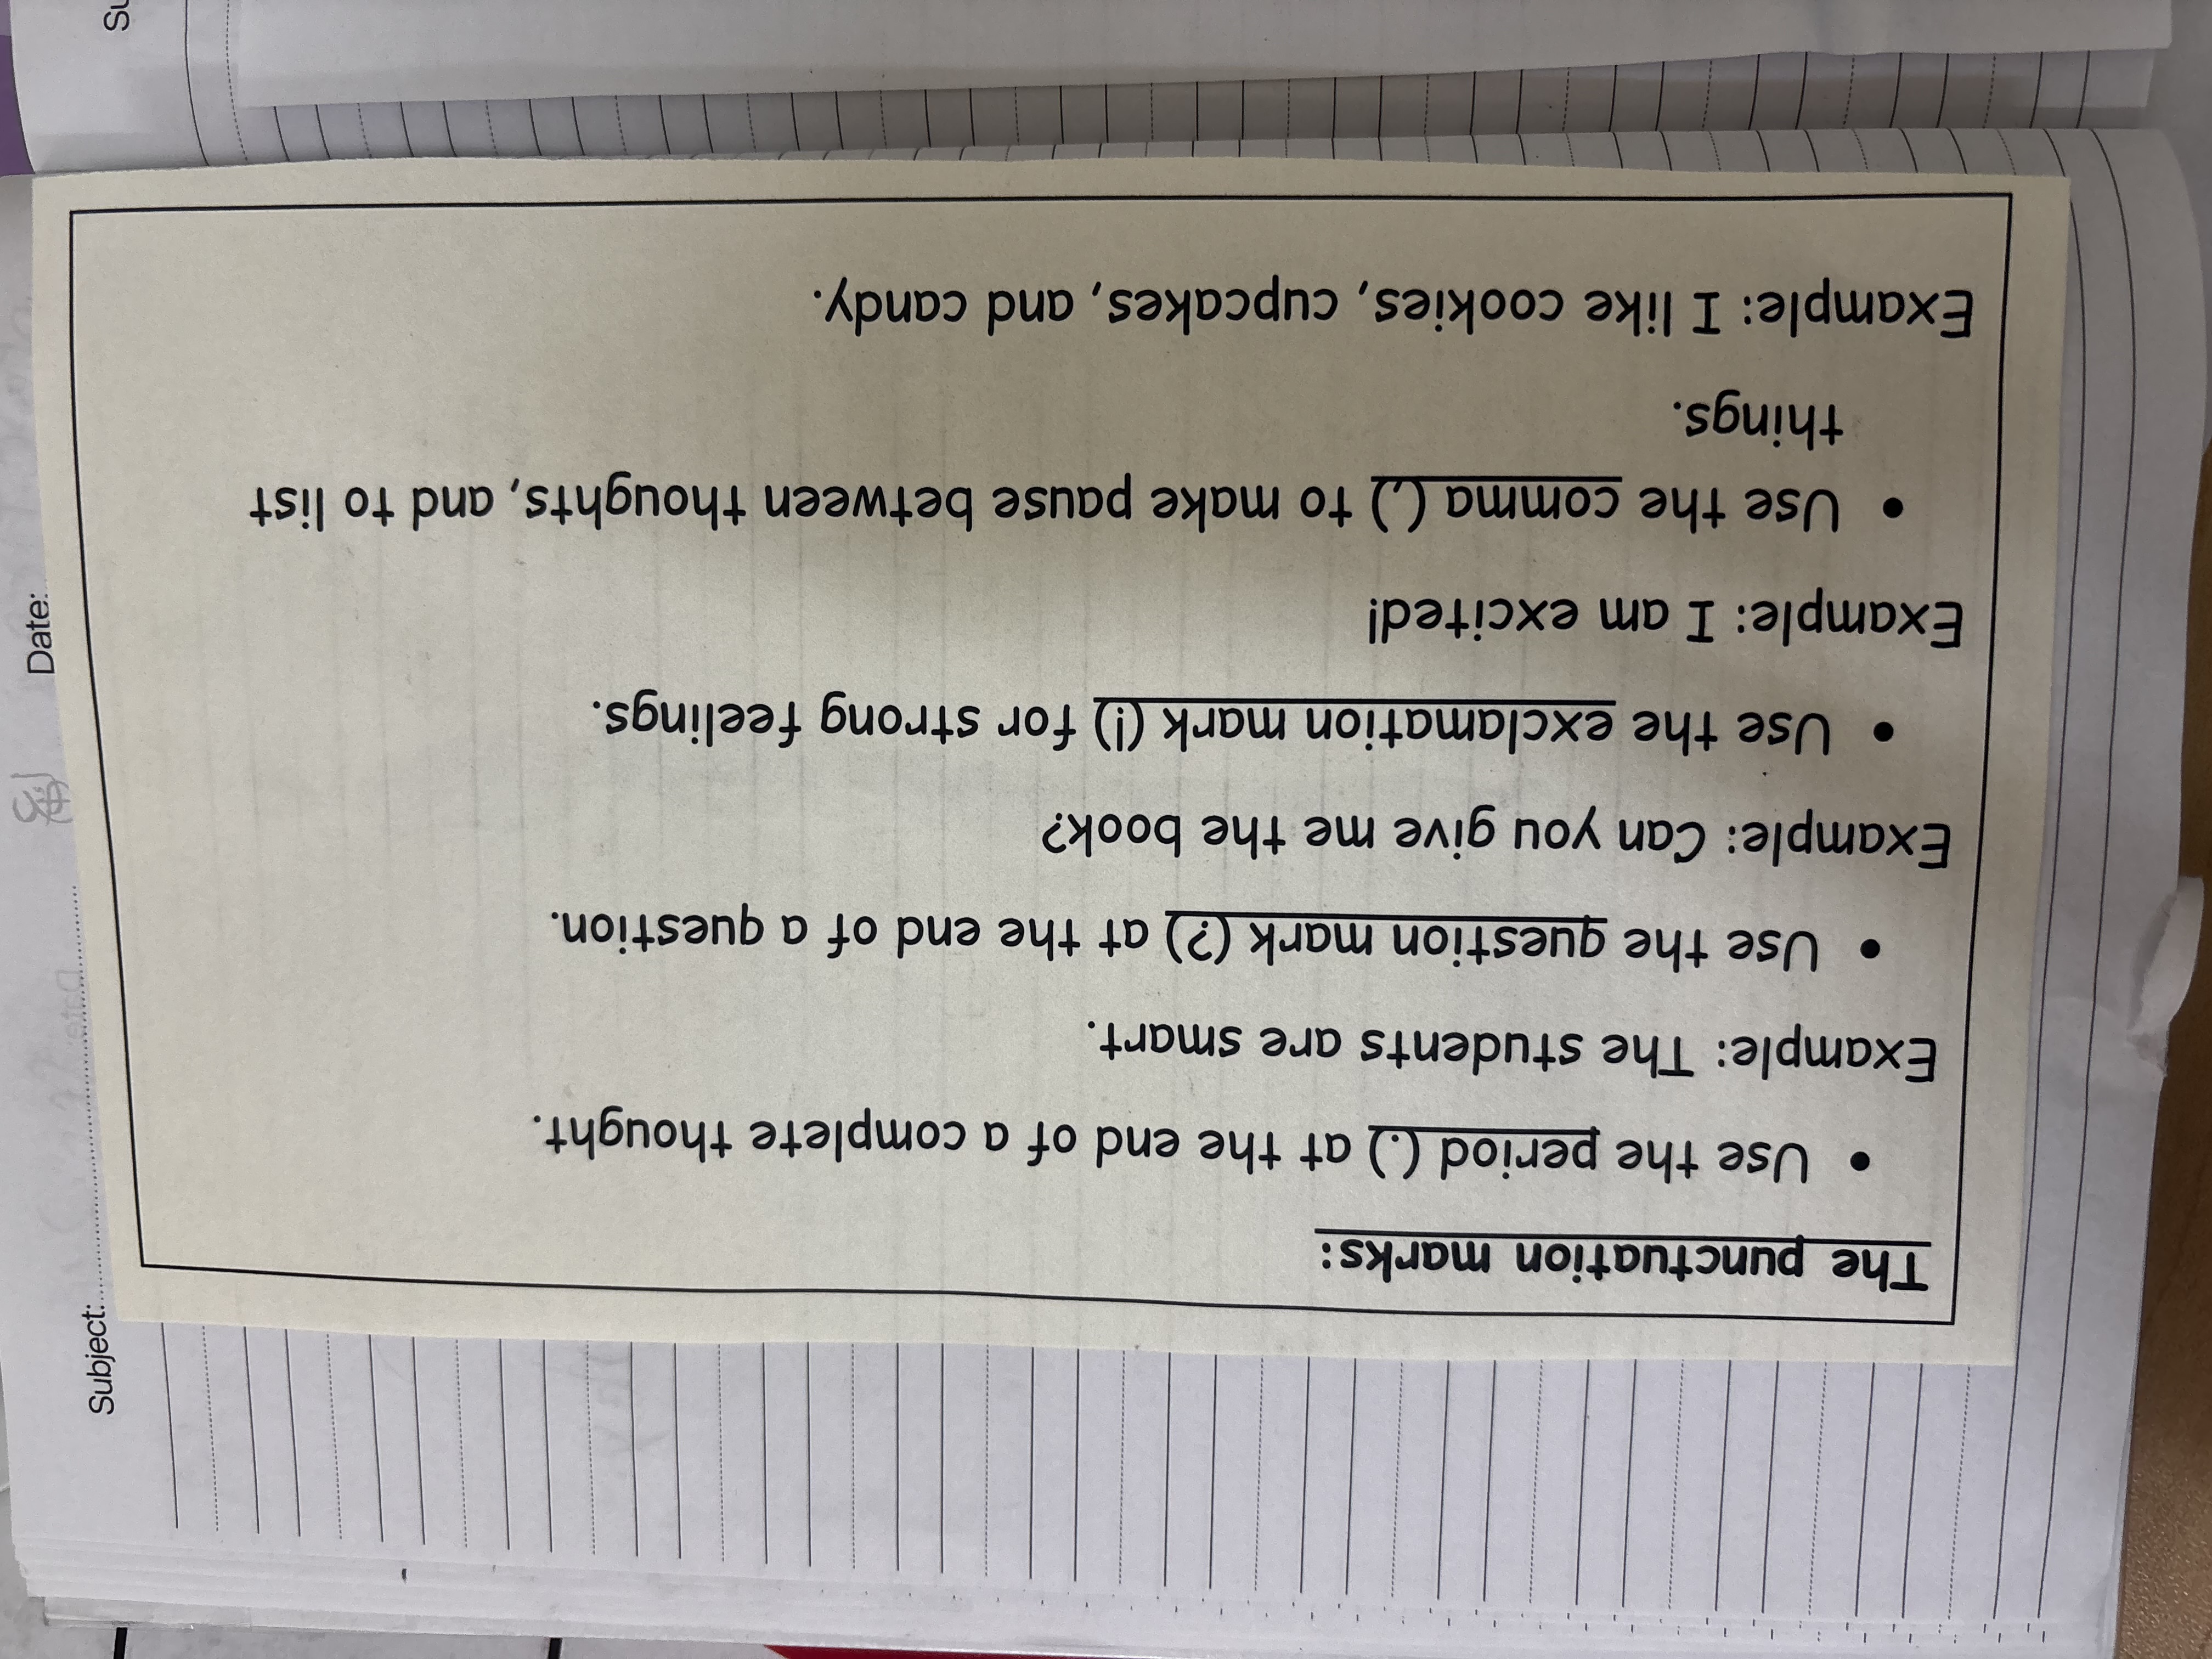 The punctuation marks:
• Use the period (.) at the end of a complete thought.
Example: The students are smart.
• Use the question mark (?) at the end of a question.
Example: Can you give me the book?
• Use the exclamation mark (!) for strong feelings.
Example: I am excited!
• Use the comma (,) to make pause between thoughts, and to list
things.
Example: I like cookies, cupcakes, and candy.
Subject:
Date:
Su